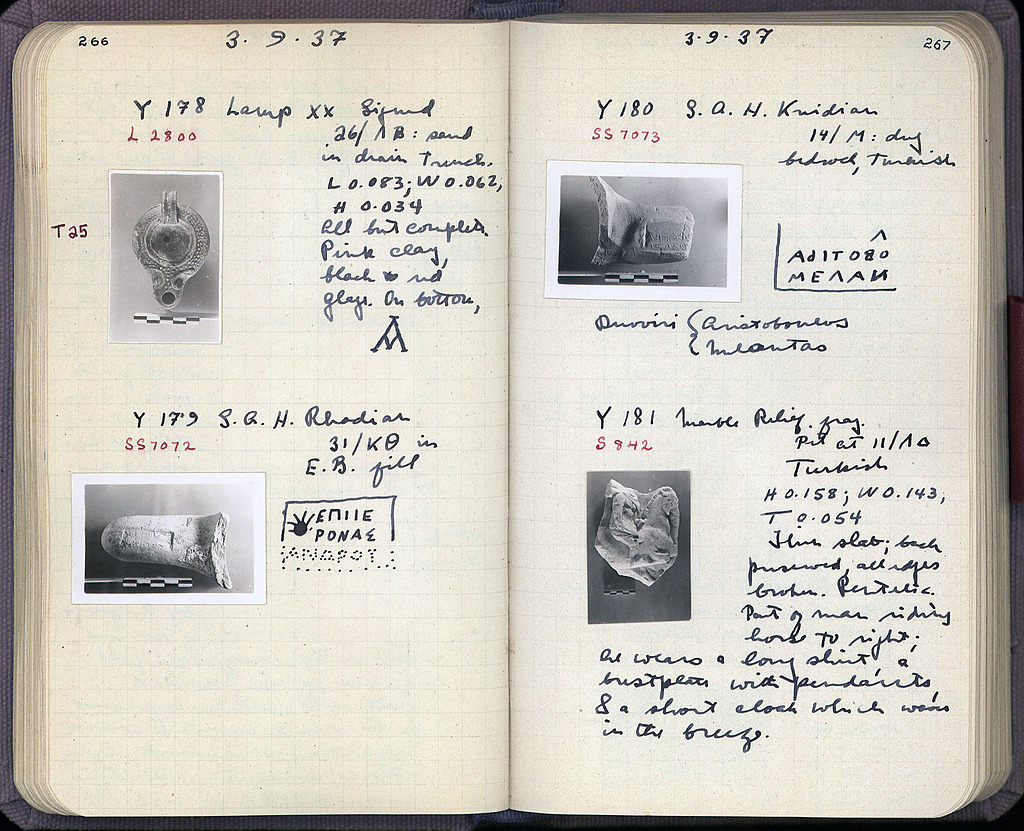 266
3.9.37
Y 178 Lamp XX Signed
L 2800
26/ΛB: sand
in drain trench.
L 0.083; W 0.062,
H 0.034
T25
All but complete.
Pink clay,
black to red
glaze. On bottom,
Y 179 S.A.H. Rhodian
SS7072
31/KΘ in
E.B. fill
ΕΠΙΙΕ
ΡΟΝΑΣ
267
3.9.37
Y 180 S.A.H. Knidian
SS7073
14/M: dug
bedrock, Turkish
Λ
ΜΕΛΑΝ
Duoviri { Aristoboulos
{ Melantas
Y 181 Marble Relief. frag.
S 842
Pit at 11/ΛΔ
Turkish
H 0.158; W 0.143,
T 0.054
Thin slab; back
preserved, all edges
broken. Pentelic.
Part of man riding
horse to right;
he wears a long shirt, a
brestplate with pendants,
& a short cloak which waves
in the breeze.